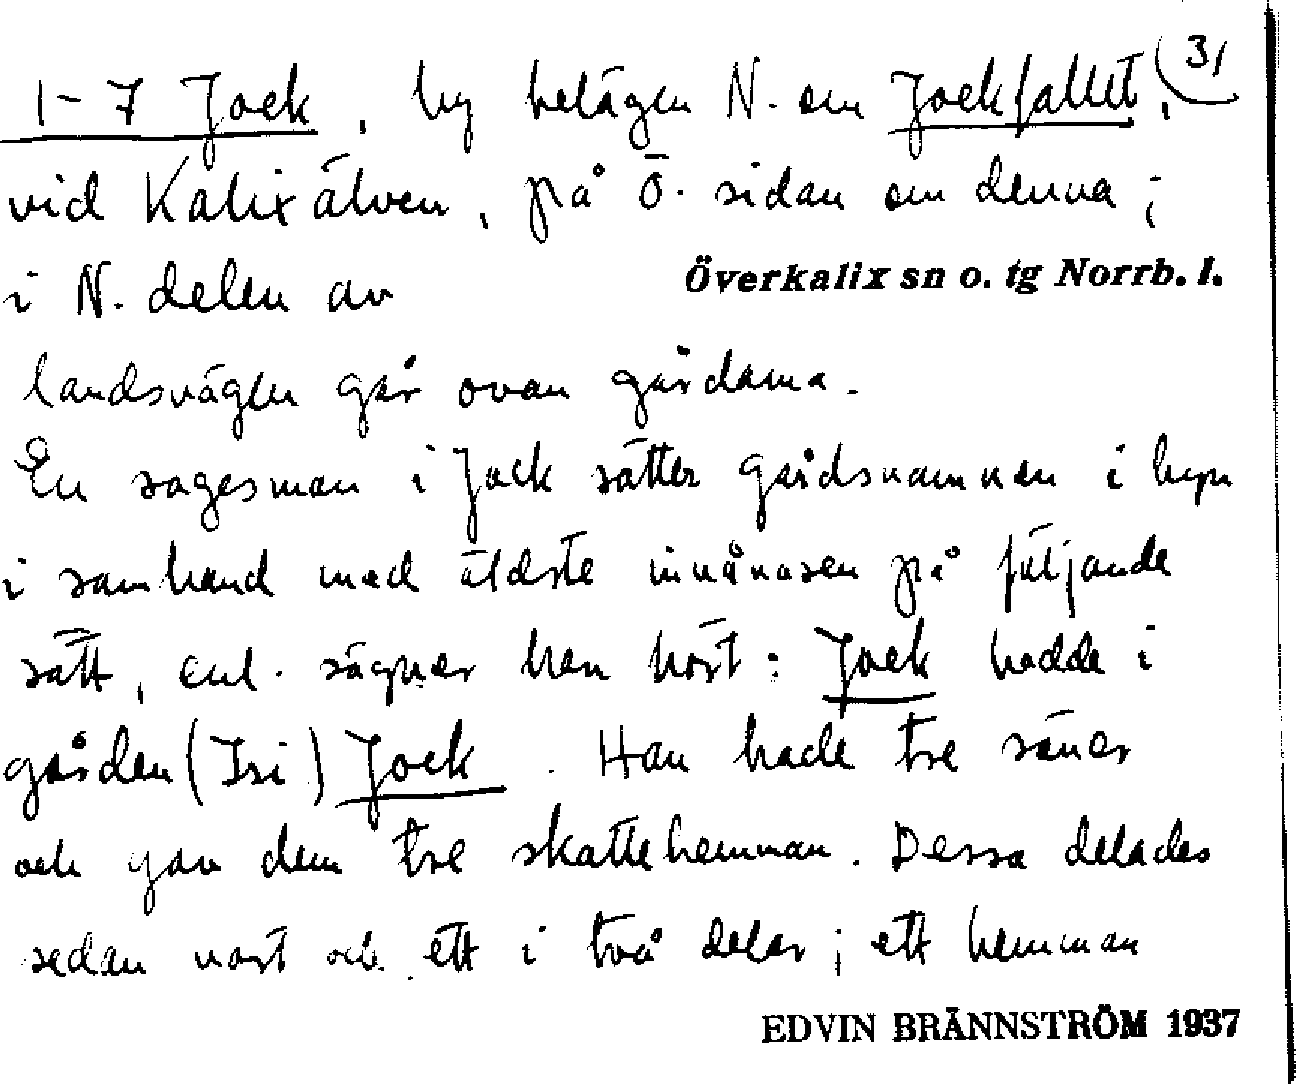 31
1-7 Jock, by belägen N. om Jockfallet,
vid Kalixälven, på Ö. sidan om denna;
i N. delen av
Överkalix sn o. tg Norrb. l.
landsvägen går ovan gårdarna.
En sagesman i Jock sätter gårdsnamnen i byn
i samband med äldste invånaren på följande
sätt, enl. sägner han hört: Jock bodde i
gården (Isi) Jock. Han hade tre söner
och gav dem tre skattehemman. Dessa delades
sedan vart och ett i två delar; ett hemman
EDVIN BRÄNNSTRÖM 1937